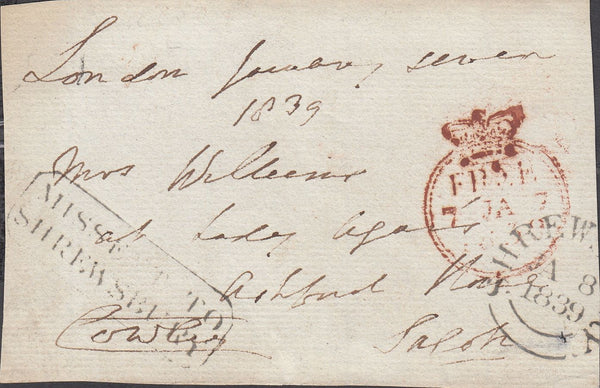 London January seven
1839
Mrs Williams
at Lady
Ashford
Cowley Salop
MISSENT TO
SHREWSBURY
FREE
7 JA 7
SHREWS
JA 8
1839